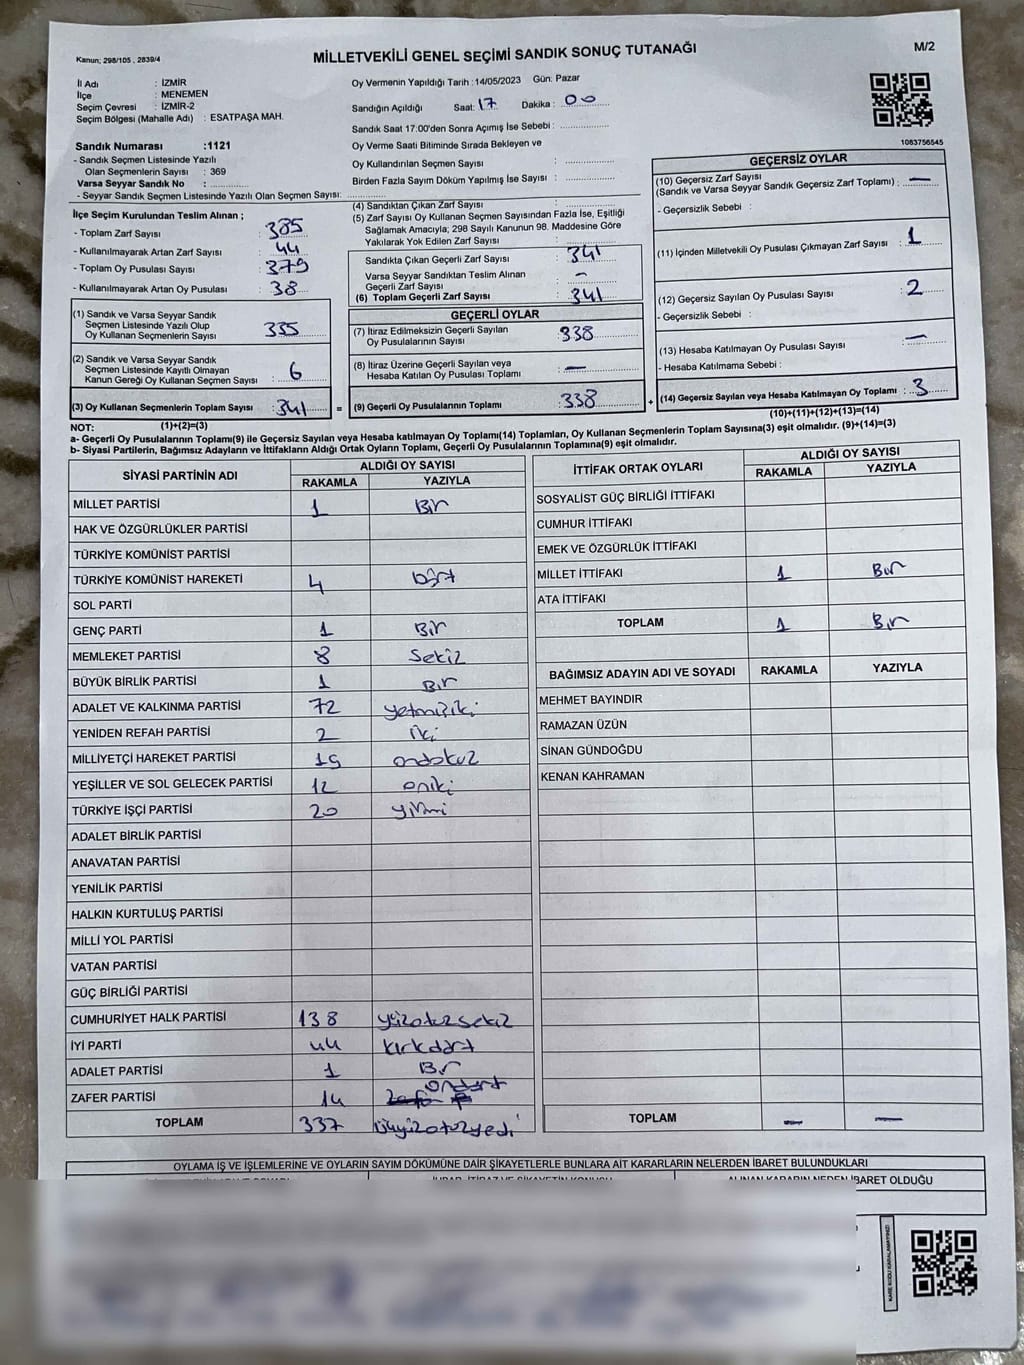 Kanun; 298/105 , 2839/4
MİLLETVEKİLİ GENEL SEÇİMİ SANDIK SONUÇ TUTANAĞI
M/2
İl Adı : İZMİR
İlçe : MENEMEN
Seçim Çevresi : İZMİR-2
Seçim Bölgesi (Mahalle Adı) : ESATPAŞA MAH.
Sandık Numarası :1121
- Sandık Seçmen Listesinde Yazılı
Olan Seçmenlerin Sayısı : 369
Varsa Seyyar Sandık No : ..............
- Seyyar Sandık Seçmen Listesinde Yazılı Olan Seçmen Sayısı: ..............
Oy Vermenin Yapıldığı Tarih : 14/05/2023 Gün: Pazar
Sandığın Açıldığı Saat: 17 Dakika : 00
Sandık Saat 17:00'den Sonra Açımış İse Sebebi : ..............
Oy Verme Saati Bitiminde Sırada Bekleyen ve
Oy Kullandırılan Seçmen Sayısı : ..............
Birden Fazla Sayım Döküm Yapılmış İse Sayısı : ..............
1083756545
İlçe Seçim Kurulundan Teslim Alınan ;
- Toplam Zarf Sayısı : 385
- Kullanılmayarak Artan Zarf Sayısı : 44
- Toplam Oy Pusulası Sayısı : 379
- Kullanılmayarak Artan Oy Pusulası : 38
(1) Sandık ve Varsa Seyyar Sandık
Seçmen Listesinde Yazılı Olup
Oy Kullanan Seçmenlerin Sayısı : 335
(2) Sandık ve Varsa Seyyar Sandık
Seçmen Listesinde Kayıtlı Olmayan
Kanun Gereği Oy Kullanan Seçmen Sayısı : 6
(3) Oy Kullanan Seçmenlerin Toplam Sayısı : 341
(1)+(2)=(3)
(4) Sandıktan Çıkan Zarf Sayısı : ..............
(5) Zarf Sayısı Oy Kullanan Seçmen Sayısından Fazla İse, Eşitliği
Sağlamak Amacıyla; 298 Sayılı Kanunun 98. Maddesine Göre
Yakılarak Yok Edilen Zarf Sayısı : ..............
Sandıkta Çıkan Geçerli Zarf Sayısı : 341
Varsa Seyyar Sandıktan Teslim Alınan
Geçerli Zarf Sayısı : -
(6) Toplam Geçerli Zarf Sayısı : 341
GEÇERLİ OYLAR
(7) İtiraz Edilmeksizin Geçerli Sayılan
Oy Pusulalarının Sayısı : 338
(8) İtiraz Üzerine Geçerli Sayılan veya
Hesaba Katılan Oy Pusulası Toplamı : -
= (9) Geçerli Oy Pusulalarının Toplamı : 338
GEÇERSİZ OYLAR
(10) Geçersiz Zarf Sayısı
(Sandık ve Varsa Seyyar Sandık Geçersiz Zarf Toplamı) : -
- Geçersizlik Sebebi :
(11) İçinden Milletvekili Oy Pusulası Çıkmayan Zarf Sayısı : 1
(12) Geçersiz Sayılan Oy Pusulası Sayısı : 2
- Geçersizlik Sebebi :
(13) Hesaba Katılmayan Oy Pusulası Sayısı : -
- Hesaba Katılmama Sebebi :
+ (14) Geçersiz Sayılan veya Hesaba Katılmayan Oy Toplamı : 3
(10)+(11)+(12)+(13)=(14)
NOT:
a- Geçerli Oy Pusulalarının Toplamı(9) ile Geçersiz Sayılan veya Hesaba katılmayan Oy Toplamı(14) Toplamları, Oy Kullanan Seçmenlerin Toplam Sayısına(3) eşit olmalıdır. (9)+(14)=(3)
b- Siyasi Partilerin, Bağımsız Adayların ve İttifakların Aldığı Ortak Oyların Toplamı, Geçerli Oy Pusulalarının Toplamına(9) eşit olmalıdır.
SİYASİ PARTİNİN ADI ALDIĞI OY SAYISI
RAKAMLA YAZIYLA
MİLLET PARTİSİ 1 Bir
HAK VE ÖZGÜRLÜKLER PARTİSİ
TÜRKİYE KOMÜNİST PARTİSİ
TÜRKİYE KOMÜNİST HAREKETİ 4 dört
SOL PARTİ
GENÇ PARTİ 1 Bir
MEMLEKET PARTİSİ 8 Sekiz
BÜYÜK BİRLİK PARTİSİ 1 Bir
ADALET VE KALKINMA PARTİSİ 72 yetmişiki
YENİDEN REFAH PARTİSİ 2 iki
MİLLİYETÇİ HAREKET PARTİSİ 19 ondokuz
YEŞİLLER VE SOL GELECEK PARTİSİ 12 oniki
TÜRKİYE İŞÇİ PARTİSİ 20 yirmi
ADALET BİRLİK PARTİSİ
ANAVATAN PARTİSİ
YENİLİK PARTİSİ
HALKIN KURTULUŞ PARTİSİ
MİLLİ YOL PARTİSİ
VATAN PARTİSİ
GÜÇ BİRLİĞİ PARTİSİ
CUMHURİYET HALK PARTİSİ 138 yüzotuzsekiz
İYİ PARTİ 44 kırkdört
ADALET PARTİSİ 1 Bir
ZAFER PARTİSİ 14 ondört
TOPLAM 337 üçyüzotuzyedi
İTTİFAK ORTAK OYLARI ALDIĞI OY SAYISI
RAKAMLA YAZIYLA
SOSYALİST GÜÇ BİRLİĞİ İTTİFAKI
CUMHUR İTTİFAKI
EMEK VE ÖZGÜRLÜK İTTİFAKI
MİLLET İTTİFAKI 1 Bir
ATA İTTİFAKI
TOPLAM 1 Bir
BAĞIMSIZ ADAYIN ADI VE SOYADI RAKAMLA YAZIYLA
MEHMET BAYINDIR
RAMAZAN ÜZÜN
SİNAN GÜNDOĞDU
KENAN KAHRAMAN
TOPLAM - -
OYLAMA İŞ VE İŞLEMLERİNE VE OYLARIN SAYIM DÖKÜMÜNE DAİR ŞİKAYETLERLE BUNLARA AİT KARARLARIN NELERDEN İBARET BULUNDUKLARI
ALINAN KARARIN NEDEN İBARET OLDUĞU